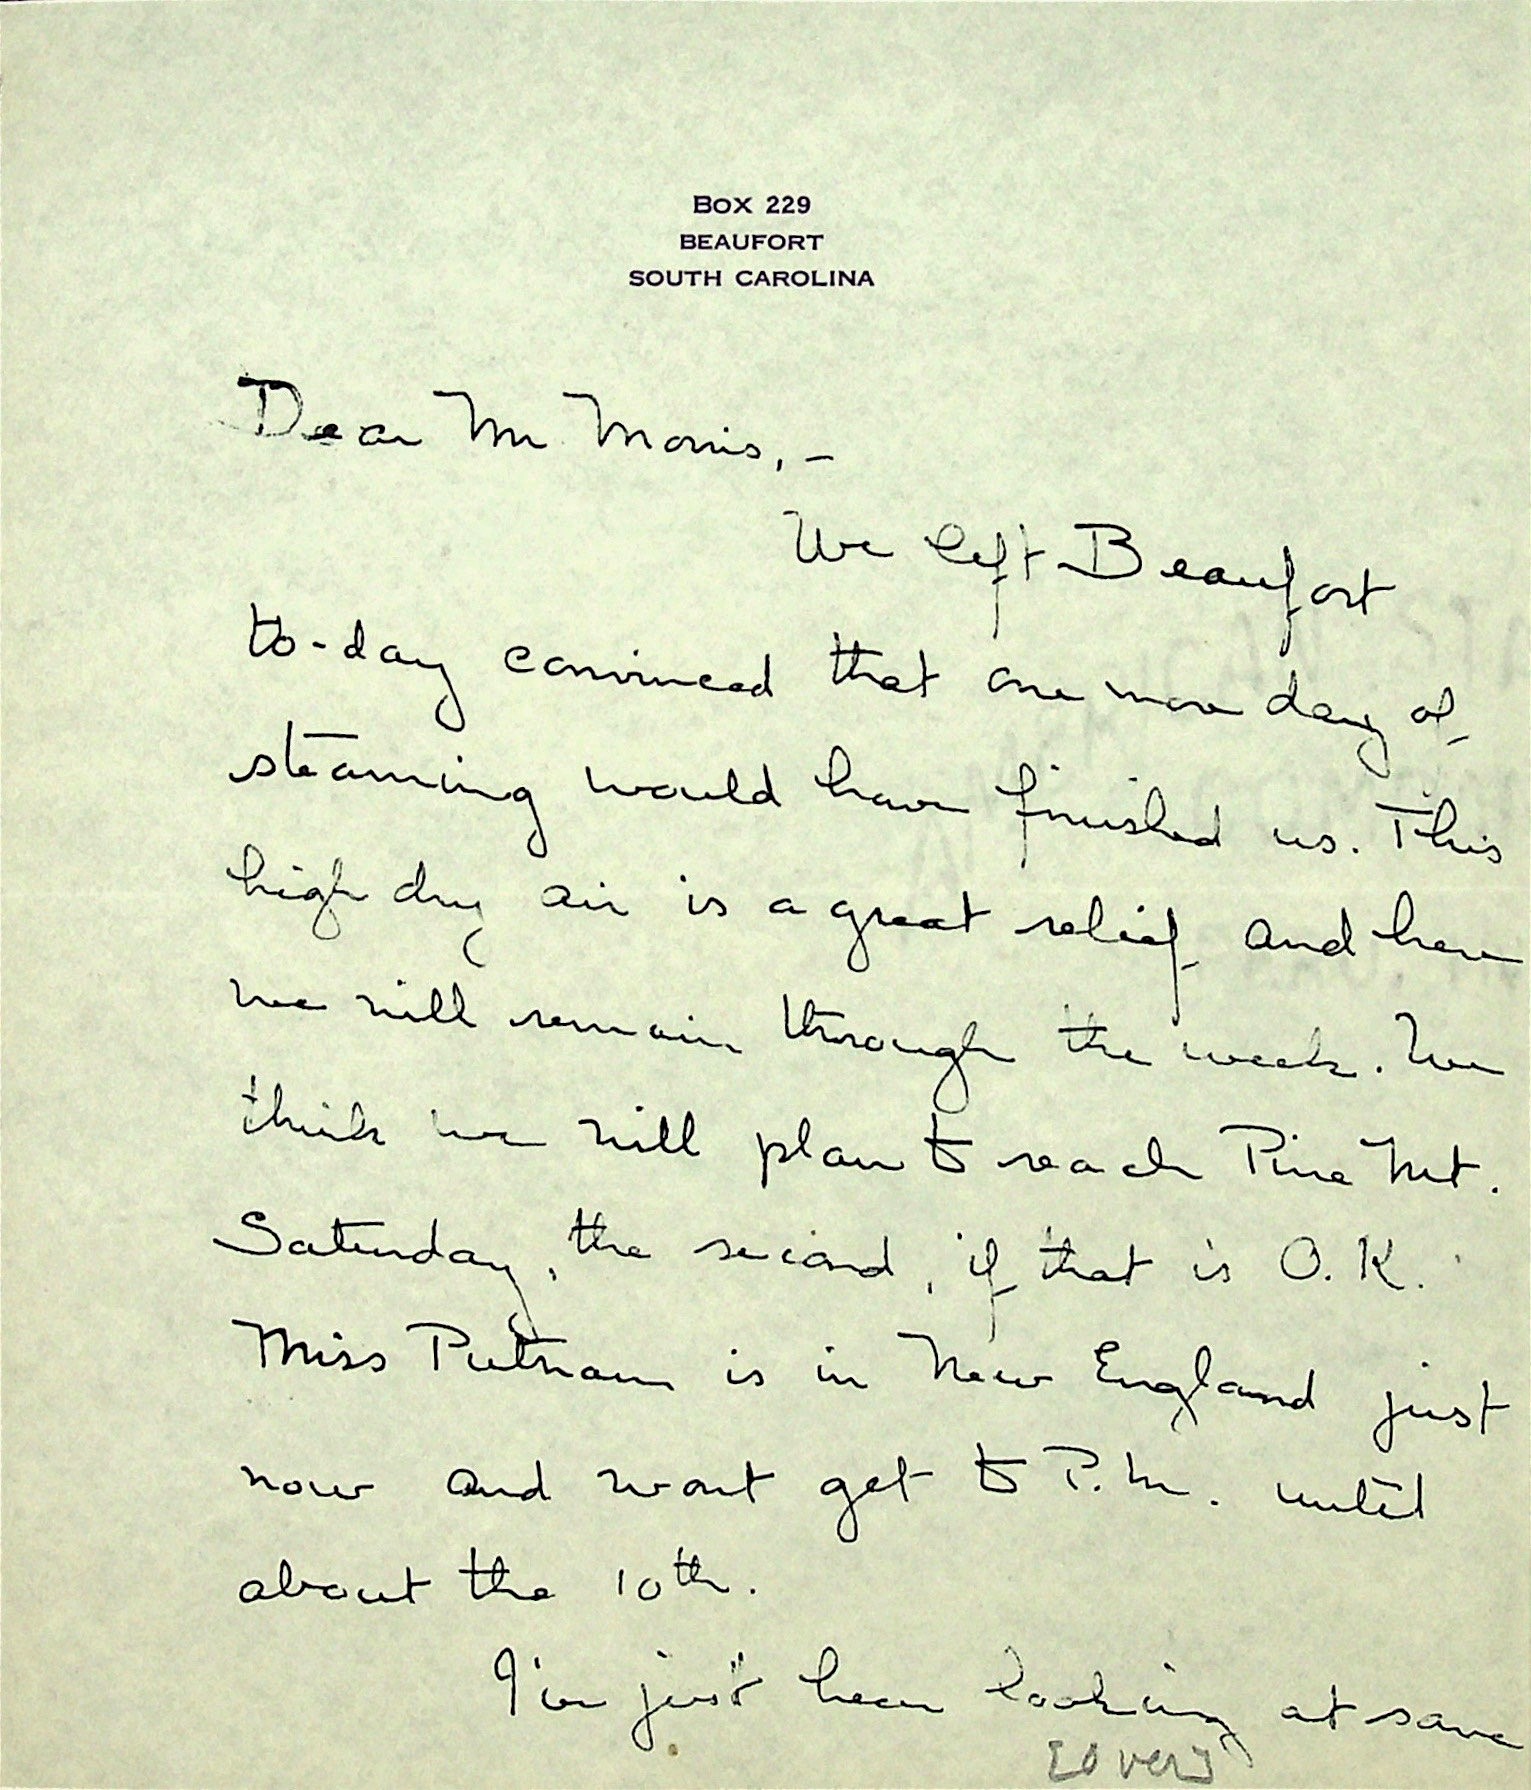 BOX 229
BEAUFORT
SOUTH CAROLINA
Dear Mr Morris, -
We left Beaufort
to-day convinced that one more day of
steaming would have finished us. This
high dry air is a great relief and here
we will remain through the week. We
think we will plan to reach Pine Mt.
Saturday, the second, if that is O.K.
Miss Putnam is in New England just
now and wont get to P.M. until
about the 10th.
I've just been looking at some
[over]